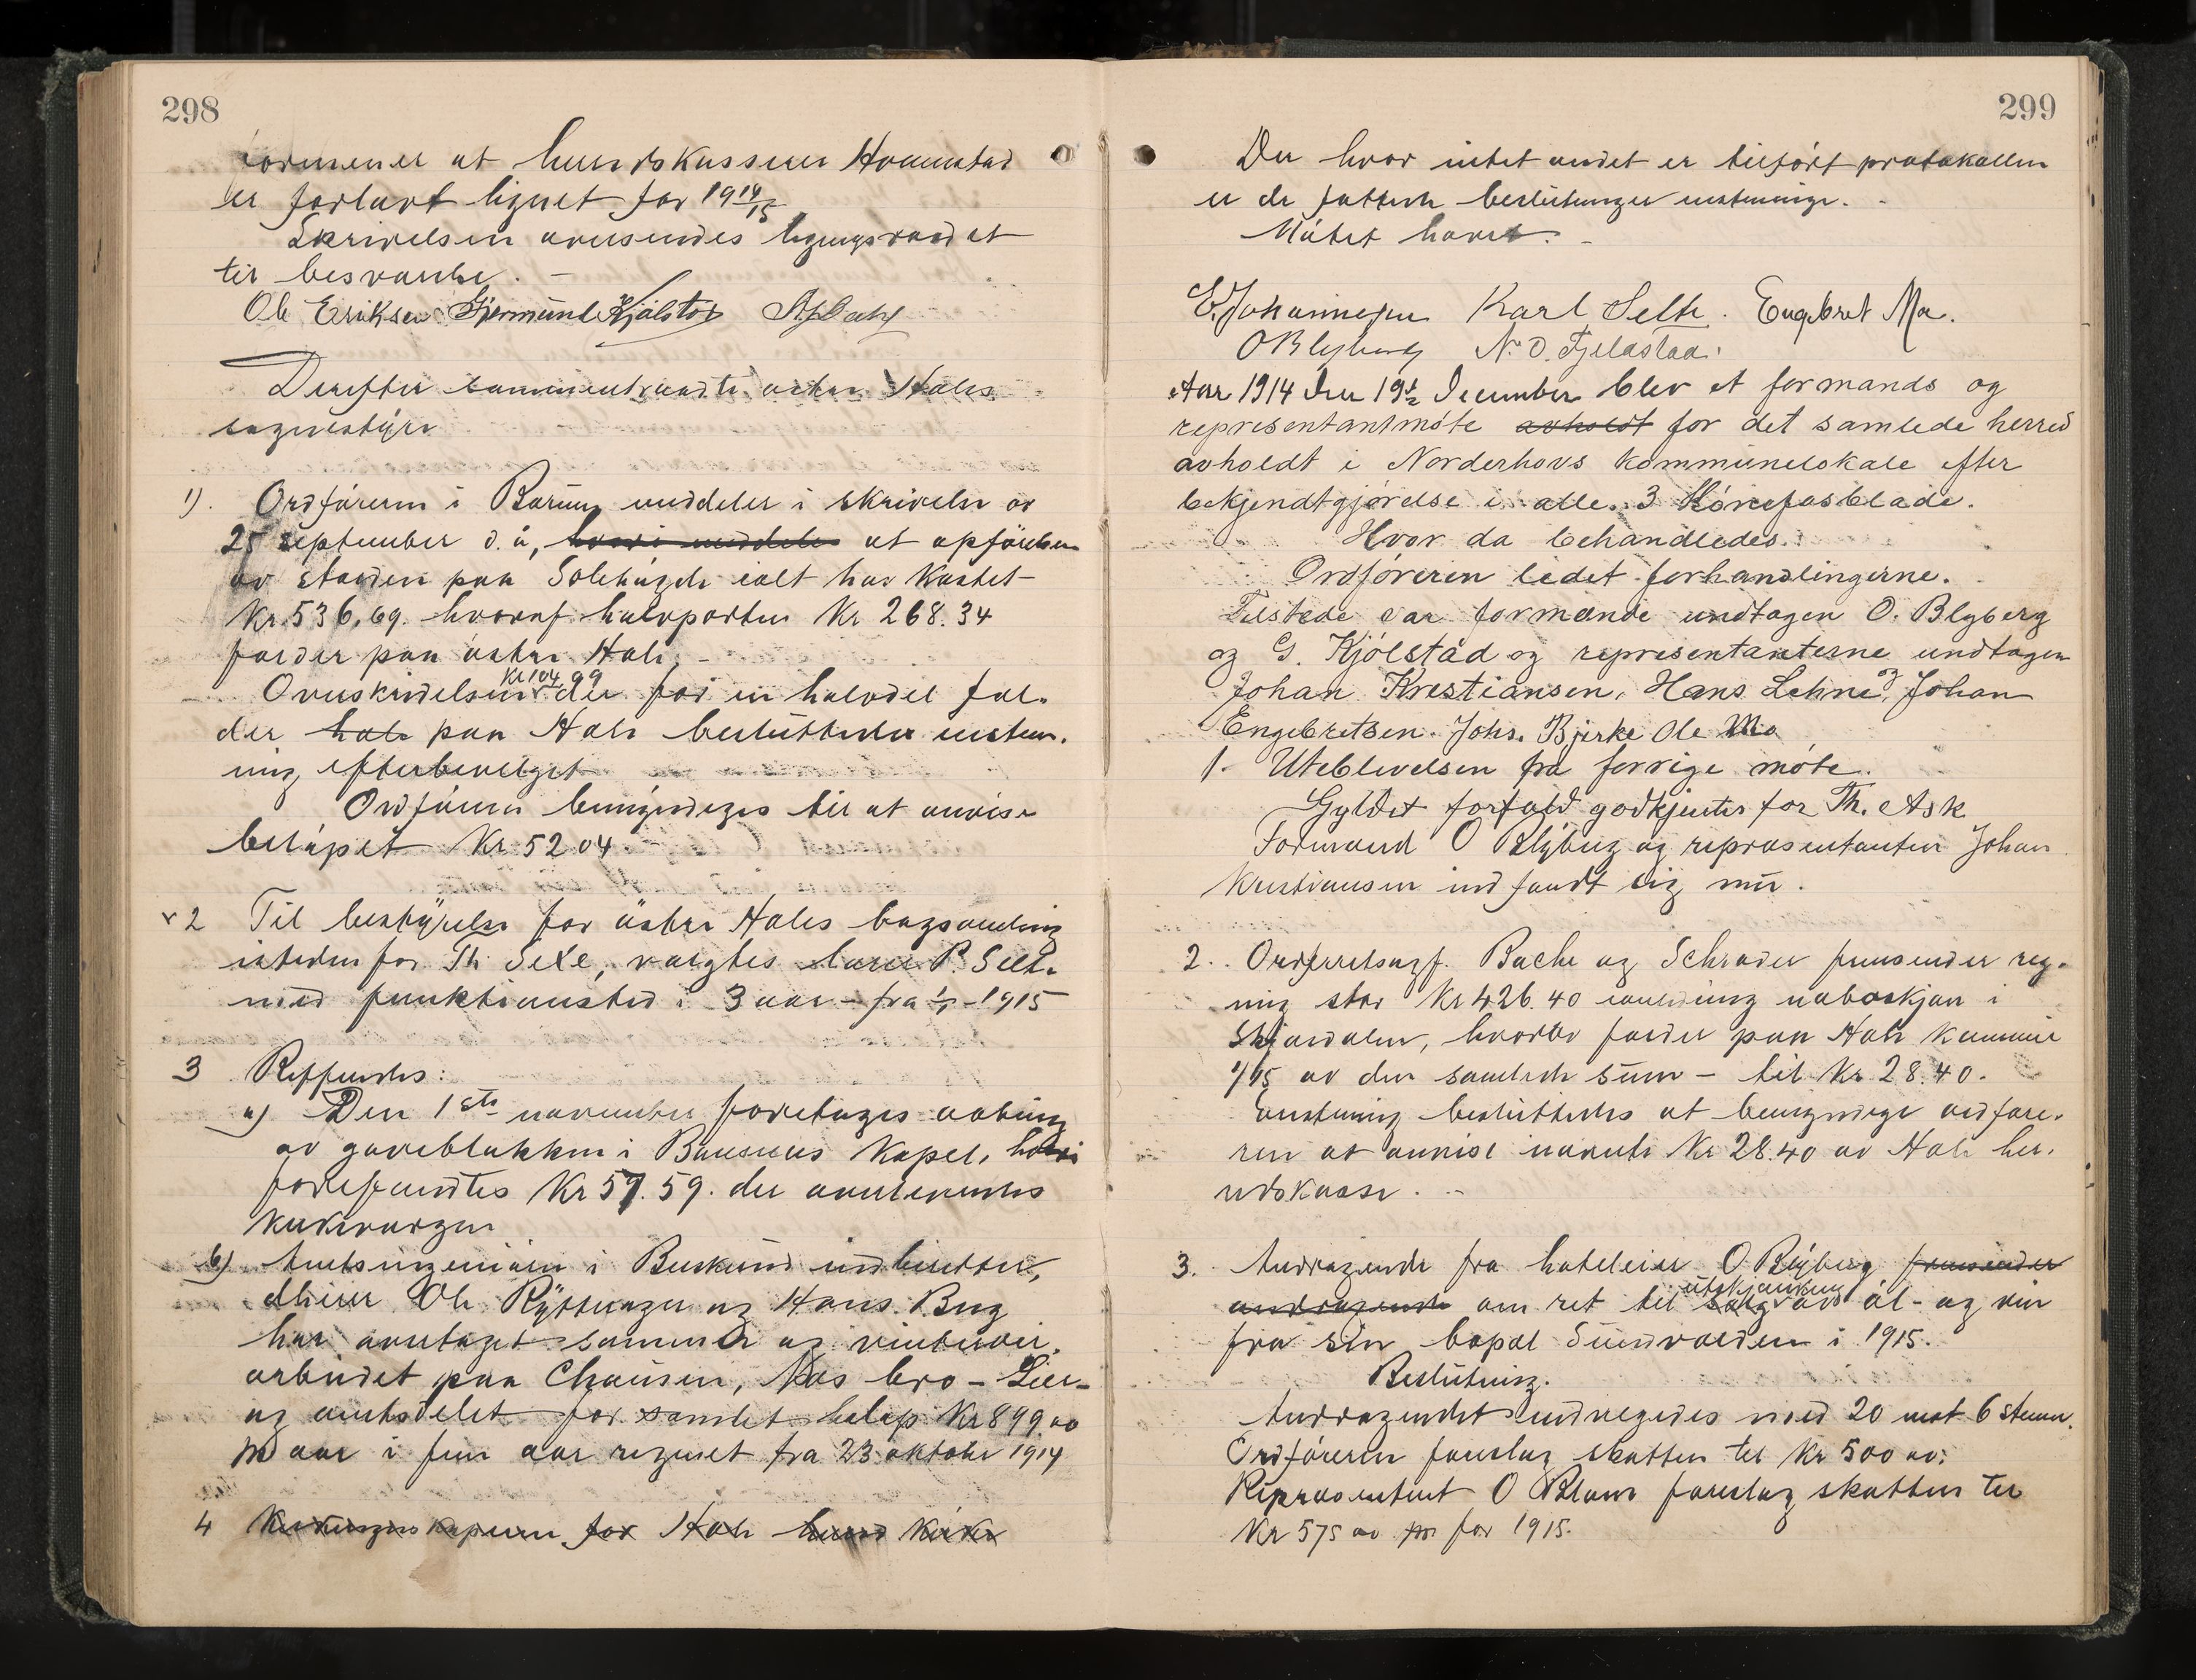 298
formener at herredskasserer Hvamstad
er forlavt lignet for 1914/15
Skrivelsen oversendes ligningsraadet
til besvarelse. –
Ole Eriksen Gjermund Kjølstad
Derefter sammentraadte østre Holes
sognestyre
1). Ordføreren i Bærum meddeler i skrivelse av
25 september d.å, hvori meddeles at opførelsen
av stolden paa Solehøgda ialt har kostet
Kr. 536,69. hvoraf halvparten Kr 268.34
falder paa østre Hole, –
Overskridelsen Kr 104,99 der for en halvdel fal-
der hole paa Hole besluttedes enstem-
mig efterbevilget
Ordføreren bemyndiges til at anvise
beløpet Kr. 52 04 –
2 Til bestyrelse for østre Holes bogsamling
istedenfor Th Sexe, valgtes lærer P Selte
med funktionstid i 3 aar – fra 1/1 – 1915
3 Refferertes:
a) Den 1ste november foretoges aabning
av gaveblokken i Bønsnes Kapel, hvori
forefandtes Kr 57.59. der avleveredes
kirkevergen
b) Amtsingeniøren i Buskerud indberetter,
at Ole Rytterager og Hans Berg
har overtaget sommer og vintervei-
arbeidet paa Chauseen, Nøs bro – Lier-
og amtsdelet for samlet beløp Kr 899.00
pr aar i fem aar regnet fra 23 oktober 1914
4 for Hole herred kirke
299
Der hvor intet andet er tilført protokollen
er de fattede beslutninger enstemmige. –
Møtet hævet. –
E. Johannesen Karl Selte. Engebret Mo.
O Blyberg N. O. Fjeldstad.
Aar 1914 den 19de December blev et formands og
representantmøte avholdt for det samlede herred
avholdt i Norderhovs kommunelokale efter
bekjendtgjørelse i alle 3 Hønefosblade.
Hvor da behandledes:
Ordføreren ledet forhandlingerne.
Tilstede var formænde undtagen O. Blyberg
og G. Kjølstad og representanterne undtagen
Johan Kristiansen, Hans Lehne, og Johan
Engebretsen. Johs. Bjerke Ole Mo
1. Uteblivelsen fra forrige møte.
Gyldig forfald godkjentes for Th. Ask
Formand O Blyberg og representanten Johan
Kristiansen indfandt sig nu.
2. Overretssagf. Bache og Schrøder fremsender reg-
ning stor Kr 426.40 naboskjøn i
Skjærdalen, hvorav falder paa Hole kommune
1/15 av den samlede sum – til Kr 28.40.
Enstemmig besluttedes at bemyndige ordføre-
ren at anvise nævnte Kr 28.40 av Hole her-
redskasse. –
3. Andragende fra hoteleier O Blyberg fremsender
andragende om ret til salg utskjænkning av øl- og vin
fra sin bopæl Sundvolden i 1915.
Beslutning.
Andragendet indvilgedes med 20 mot 6 stem.
Ordføreren foreslog skatten til Kr 500 00:
Repræsentant O Blom foreslog skatten til
Kr 575 00 pr for 1915.